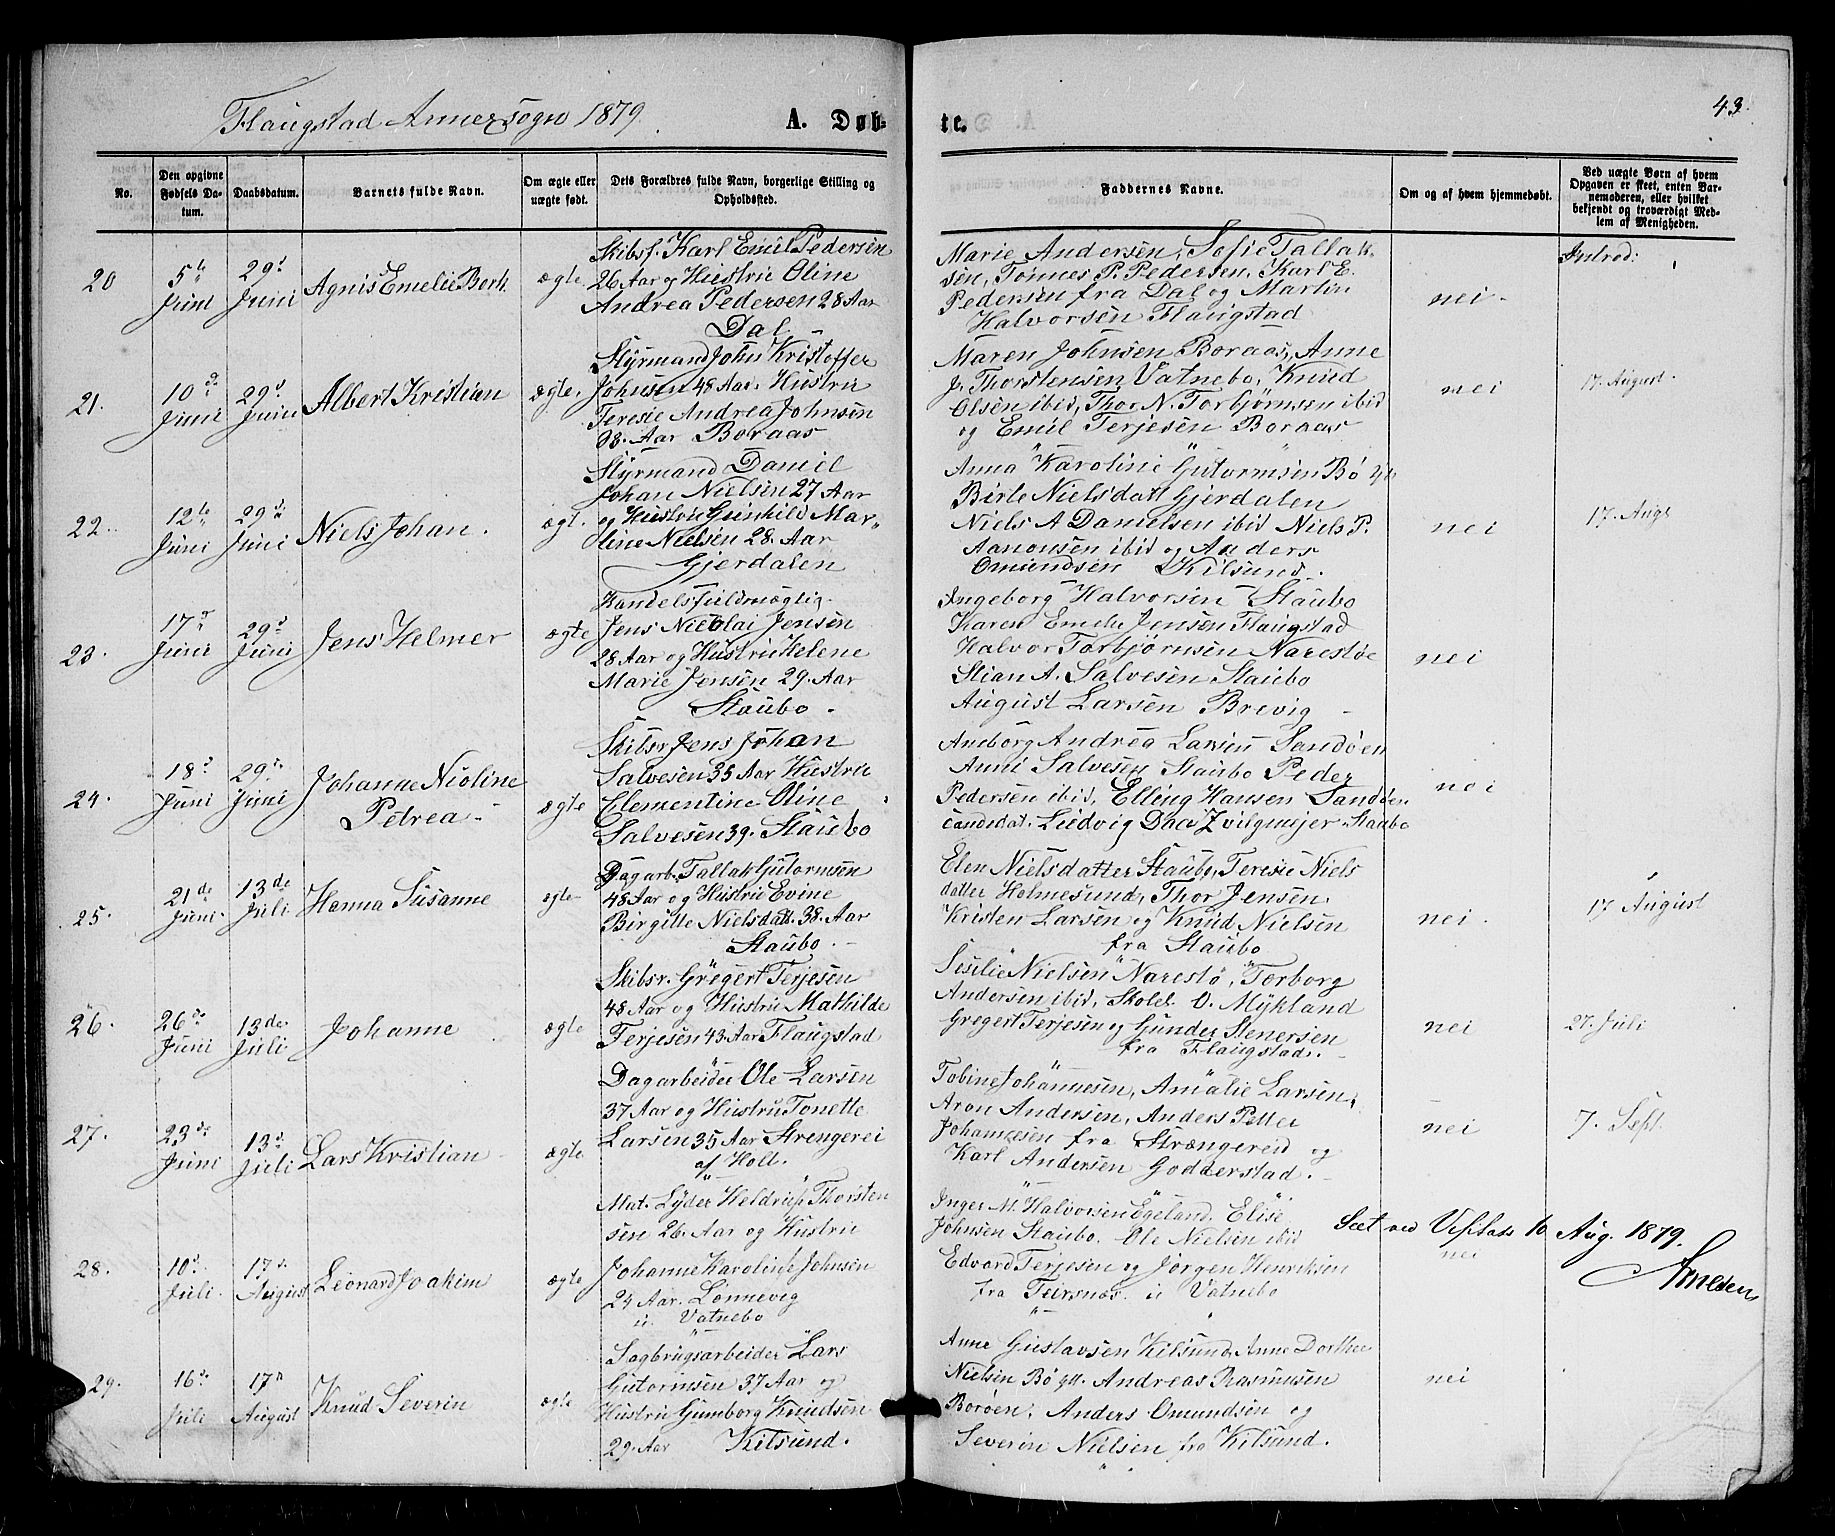 Flaugstad Annexsogn 1879.
A. Døb-
te.
43.
No.
Den opgivne
Fødsels Da-
tum.
Daabsdatum.
Barnets fulde Navn.
Om ægte eller
uægte født.
Dets Forældres fulde Navn, borgerlige Stilling og
Opholdssted.
Faddernes Navne.
Om og af hvem hjemmedøbt.
Ved uægte Børn af hvem
Opgaven er skeet, enten Bar-
nemoderen, eller hvilket
bekjendt og troværdigt Med-
lem af Menigheden.
20
5te
Juni
29d
Juni
Agnis Emelie Borh.
ægte
Skibsf. Karl Emil Pedersen
26 Aar og Hustrie Oline
Andrea Pedersen 28 Aar
Dal
Marie Andersen, Sofie Tallak-
sen, Tønnes P. Pedersen, Karl E.
Pedersen fra Dal og Martin
Halvorsen Flaugstad
nei.
Introd:
21.
10de
Juni
29d
Juni
Albert Kristian
ægte.
Styrmand John Kristoffer
Johnsen 48 Aar. Hustrie
Teresie Andrea Johnsen
38. Aar Boraas
Maren Johnsen Boraas, Anne
J. Thorstensen Vatnebo, Knud
Olsen ibid, Thor N. Torbjørnsen ibid
og Emil Terjesen Boraas
nei
17. August.
22.
12te
Juni
29de
Juni
Niels Johan.
ægt.
Styrmand Daniel
Johan Nielsen 27 Aar
og Hustrie Gunhild Mar-
line Nielsen 28. Aar
Gjerdalen
Anna Karolinie Gutormsen Bø
Birte Nielsdatt Gjerdalen
Niels A Danielsen ibid Niels P.
Aanonsen ibid og Anders
Omundsen Kilsund.
nei
17. Augs
23.
17d
Juni
29d
Juni
Jens Helmer
ægte
Handelsfuldmægtig.
Jens Nicolai Jensen
28 Aar og Hustrie Helene
Marie Jensen 29. Aar
Staubo.
Ingeborg Halvorsen Staubo
Karen Emelie Jensen Flaugstad
Halvor Torbjørnsen Narestøe
Stian A. Salvesen Staubo
August Larsen Brevig
nei
24.
18d
Juni
29de
Juni
Johanne Nioline
Petrea
ægte
Skibsr Jens Johan
Salvesen 35 Aar Hustrie
Clementine Oline
Salvesen 39. Staubo
Aneborg Andrea Larsen Sandøen
Anne Salvesen Staubo Peder
Pedersen ibid, Elling Hansen Sandøen
candidat. Ludvig Daa Zvilgmejer Staubo
nei
25.
21de
Juni
13de
Juli
Hanna Susanne
ægte
Dagarb. Tallak Gutormsen
48 Aar og Hustrie Evine
Birgitte Nielsdatt. 38. Aar
Staubo.
Elen Nielsdatter Staubo, Teresie Niels
datter Holmesund, Thor Jensen,
Kristen Larsen og Knud Nielsen
fra Staubo
nei.
17 August
26.
26de
Juni
13de
Juli
Johanne
ægte
Skibsr. Gregert Terjesen
48 Aar og Hustrie Mathilde
Terjesen 43 Aar Flaugstad
Sesilie Nielsen Narestø, Torborg
Andersen ibid, Skolel. O. Mykland
Gregert Terjesen og Gunder Stenersen
fra Flaugstad.
nei
27. Juli
27.
23de
Juni
13d
Juli
Lars Kristian
ægte
Dagarbeider Ole Larsen
37 Aar og Hustru Tonette
Larsen 35 Aar Strengerei
af Holt.
Tobine Johannesen, Amalie Larsen,
Aron Andersen, Anders Petter
Johannesen fra Strængereid og
Karl Andersen Godderstad.
nei
7. Sept.
28.
10d
Juli
17de
August
Leonard Joakim
ægte
Mat. Lyder Heldrup Thorsten
sen 26. Aar og Hustrie
Johanne Karoline Johnsen
24 Aar. Lønnevig
u. Vatnebo
Inger M. Halvorsen Egeland. Elise
Johnsen Staubo. Ole Nielsen ibid
Edvard Terjesen og Jørgen Henriksen
fra Teirsnos. u Vatnebo
nei
Seet ved Visitats 10 Aug. 1879.
29.
16de
Juli
17n
August
Knud Severin
ægte
Sagbrugsarbeider Lars
Gutormsen 37 Aar og
Hustrie Gunborg Knudsen
29. Aar Kilsund.
Anne Gustavsen Kilsund, Anne Dorthee
Nielsen Bø gtt. Andreas Rasmusen
Borøen, Anders Omundsen og
Severin Nielsen fra Kilsund.
nei